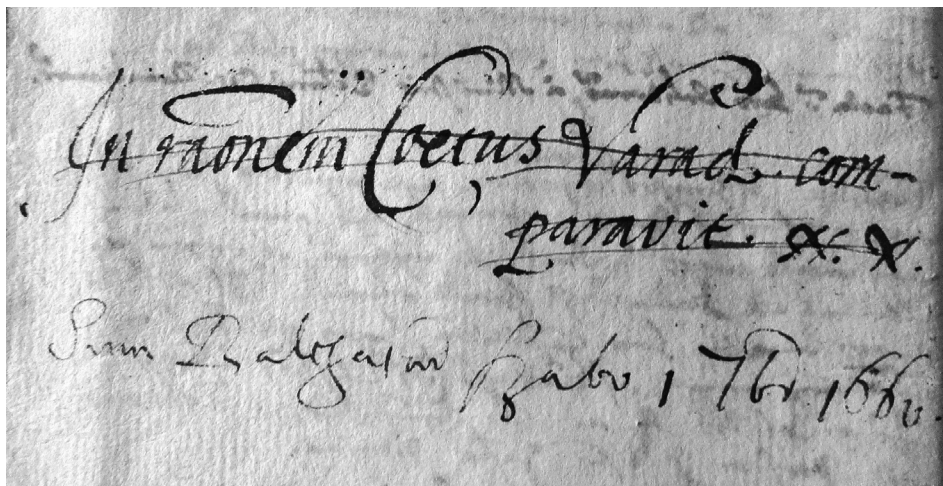 In ra͞onem Coetus Varad. com-
paravit. X. X.
Sum Balthasar Szabo 1 7br 1660.